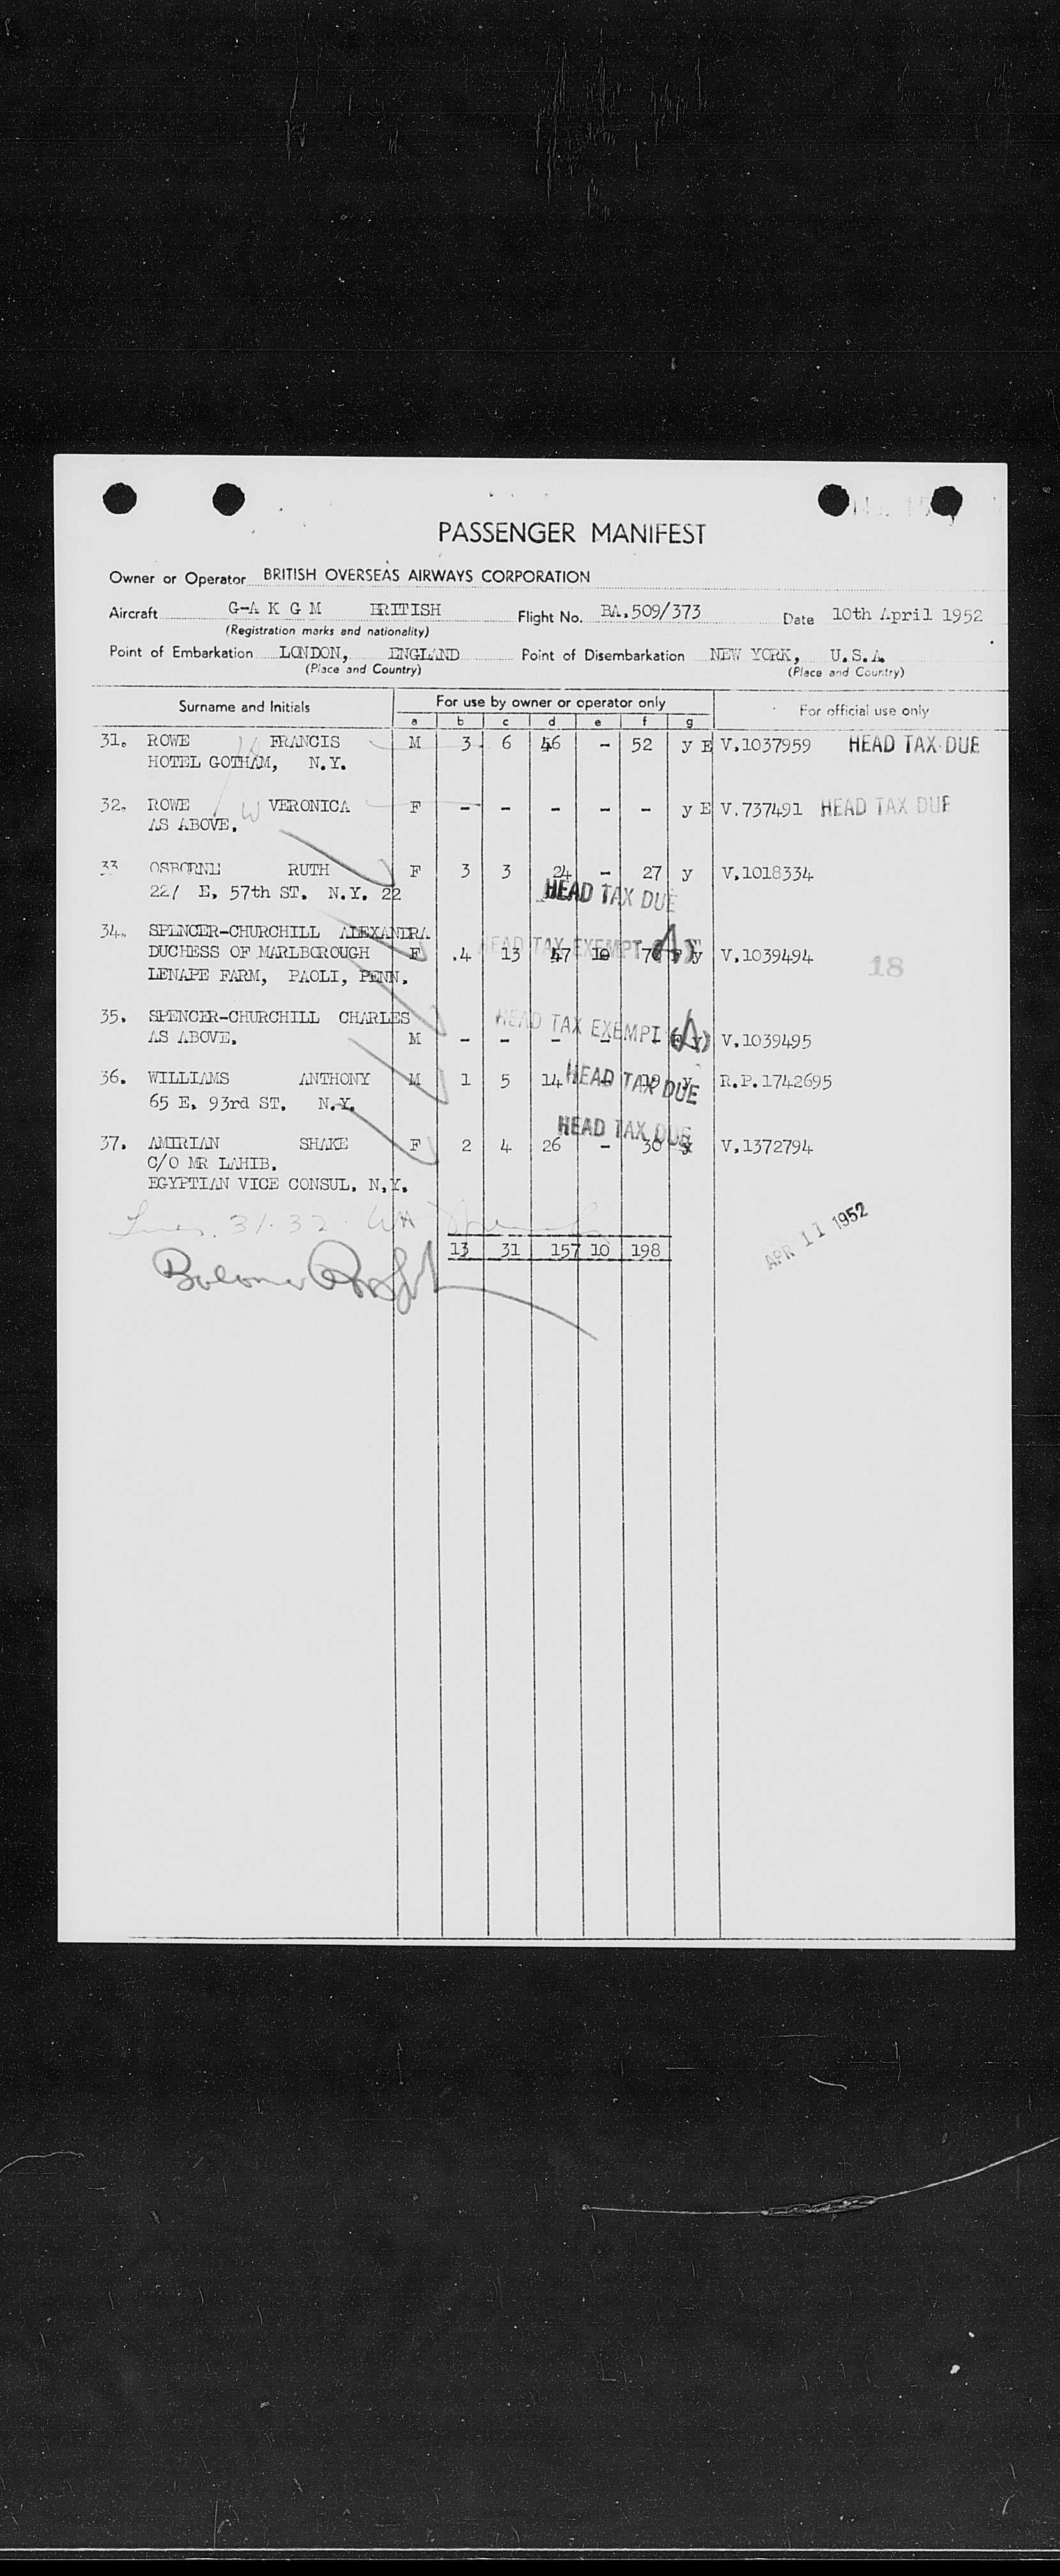 PASSENGER MANIFEST
Owner or Operator BRITISH OVERSEAS AIRWAYS CORPORATION
Aircraft G-A K G M BRITISH Flight No. BA.509/373 Date 10th April 1952
(Registration marks and nationality)
Point of Embarkation LONDON, ENGLAND Point of Disembarkation NEW YORK, U.S.A.
(Place and Country) (Place and Country)
Surname and Initials For use by owner or operator only For official use only
a b c d e f g
31. ROWE FRANCIS M 3 6 46 - 52 y E V.1037959 HEAD TAX DUE
HOTEL GOTHAM, N.Y.
32. ROWE W VERONICA F - - - - - y E V.737491 HEAD TAX DUE
AS ABOVE.
33 OSBORNE RUTH F 3 3 24 - 27 y V.1018334
22/ E, 57th ST. N.Y. 22 HEAD TAX DUE
34. SPENCER-CHURCHILL ALEXANDRA HEAD TAX EXEMPT (A)
DUCHESS OF MARLBOROUGH F .4 13 47 10 y V.1039494 18
LENAPE FARM, PAOLI, PENN.
35. SPENCER-CHURCHILL CHARLES HEAD TAX EXEMPT (A)
AS ABOVE. M - - - - - y V.1039495
36. WILLIAMS ANTHONY M 1 5 14 - 19 y R.P.1742695
65 E. 93rd ST. N.Y. HEAD TAX DUE
HEAD TAX DUE
37. AMIRIAN SHAKE F 2 4 26 - 30 y V.1372794
C/O MR LAHIB.
EGYPTIAN VICE CONSUL. N.Y.
31-32
13 31 157 10 198
APR 11 1952